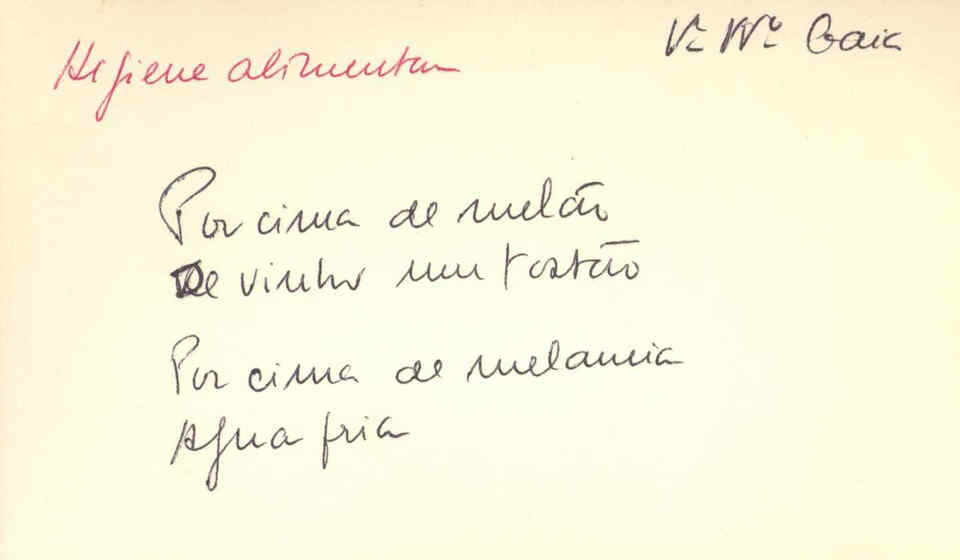 Higiene alimentar
Vª Nª Gaia
Por cima de melão
De vinho um tostão
Por cima de melancia
Água fria